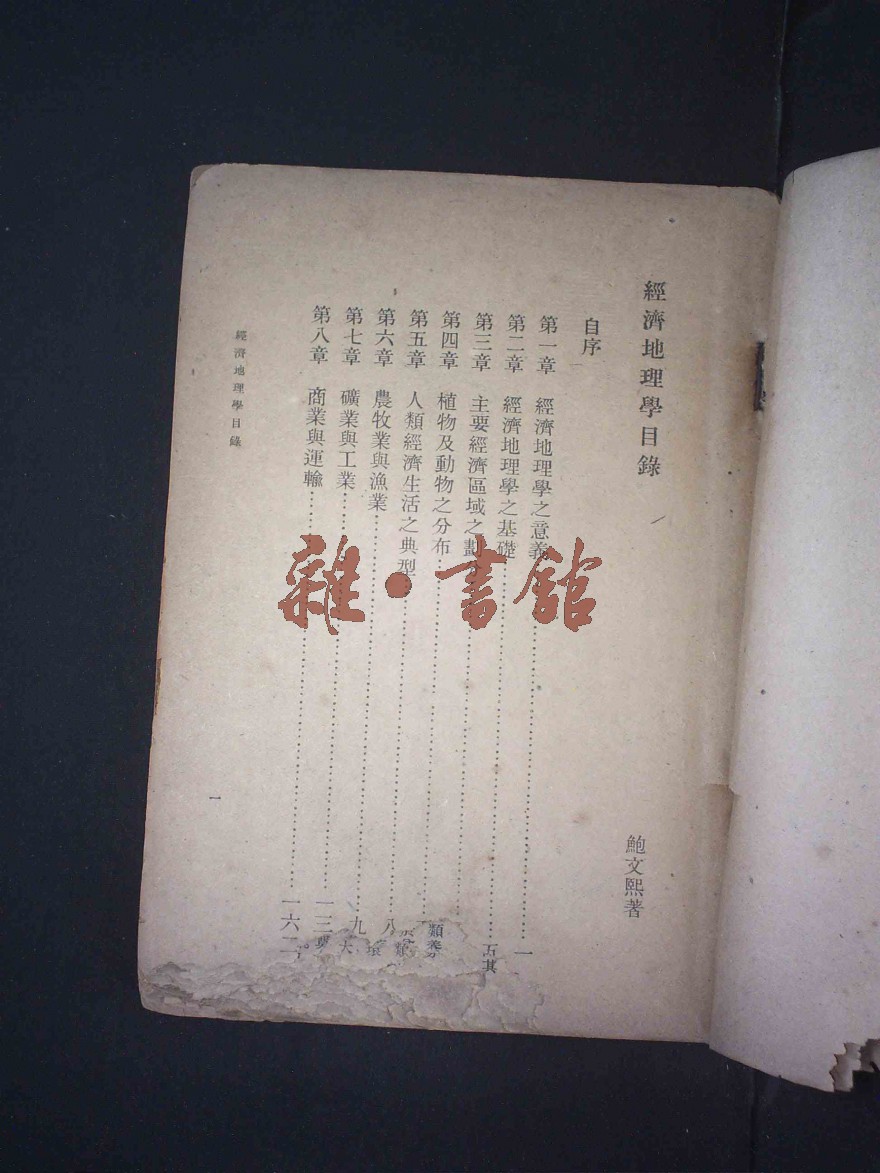 經濟地理學目錄
鮑文熙著
自序
第一章 經濟地理學之意義……一
第二章 經濟地理學之基礎……五其
第三章 主要經濟區域之劃
第四章 植物及動物之分布……類
第五章 人類經濟生活之典型……
第六章 農牧業與漁業……八
第七章 礦業與工業……九
第八章 商業與運輸……一三
一六二
經濟地理學目錄
一
雜·書館